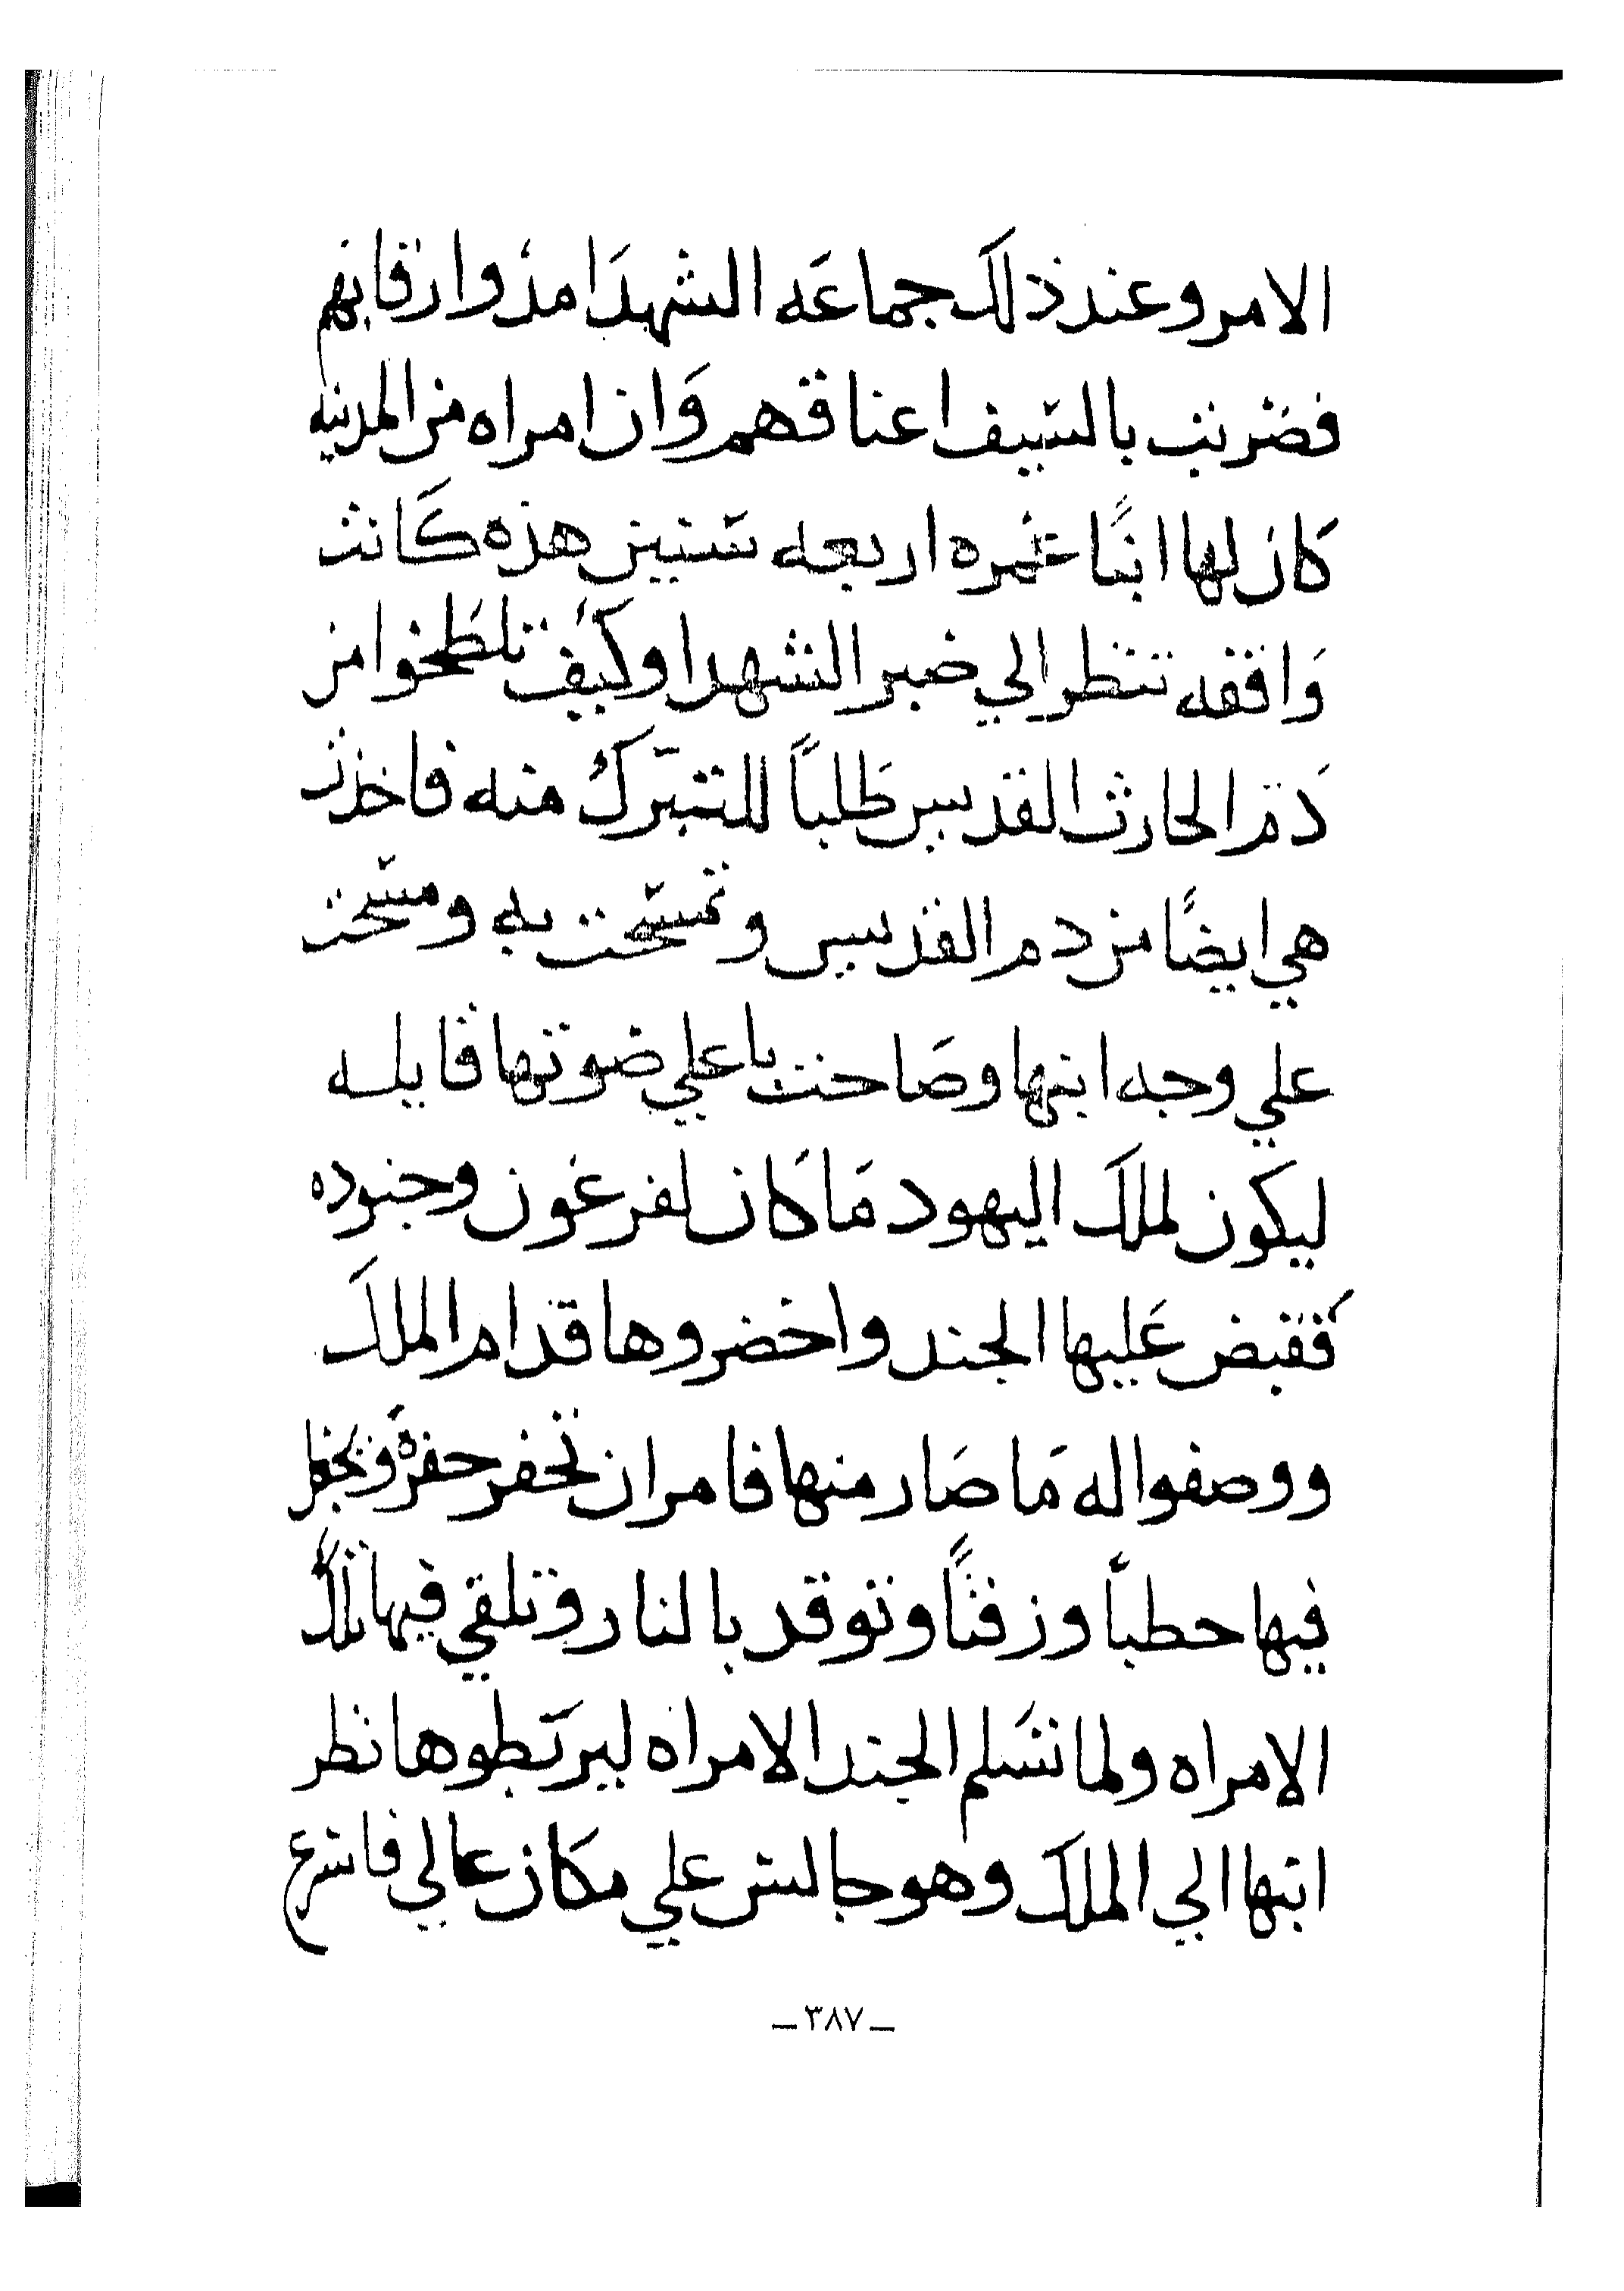 الامر وعند ذلك جماعه الشهدا مدوا رقابهم
فضربت بالسيف اعناقهم وان امراه من المدينه
كان لها ابنًا عمره اربعه سنين هذه كانت
واقفه تنظر الي صبر الشهدا وكيف تلطخوا من
دم الحارث القديس طلباً للتبرك منه فاخذت
هي ايضًا من دم القديس وتمسحت به ومسحت
علي وجه ابنها وصاحت باعلي صوتها قايله
ليكون لملك اليهود ما كان لفرعون وجنوده
فقبض عليها الجند واحضروها قدام الملك
ووصفوا له ما صار منها فامر ان تحفر حفرة ويجعل
فيها حطباً وزفتًا وتوقد بالنار وتلقي فيها تلك
الامراه ولما تسلم الجند الامراه ليربطوها نظر
ابنها الي الملك وهو جالس علي مكان عالي فاسرع
ـ ٣٨٧ ـ